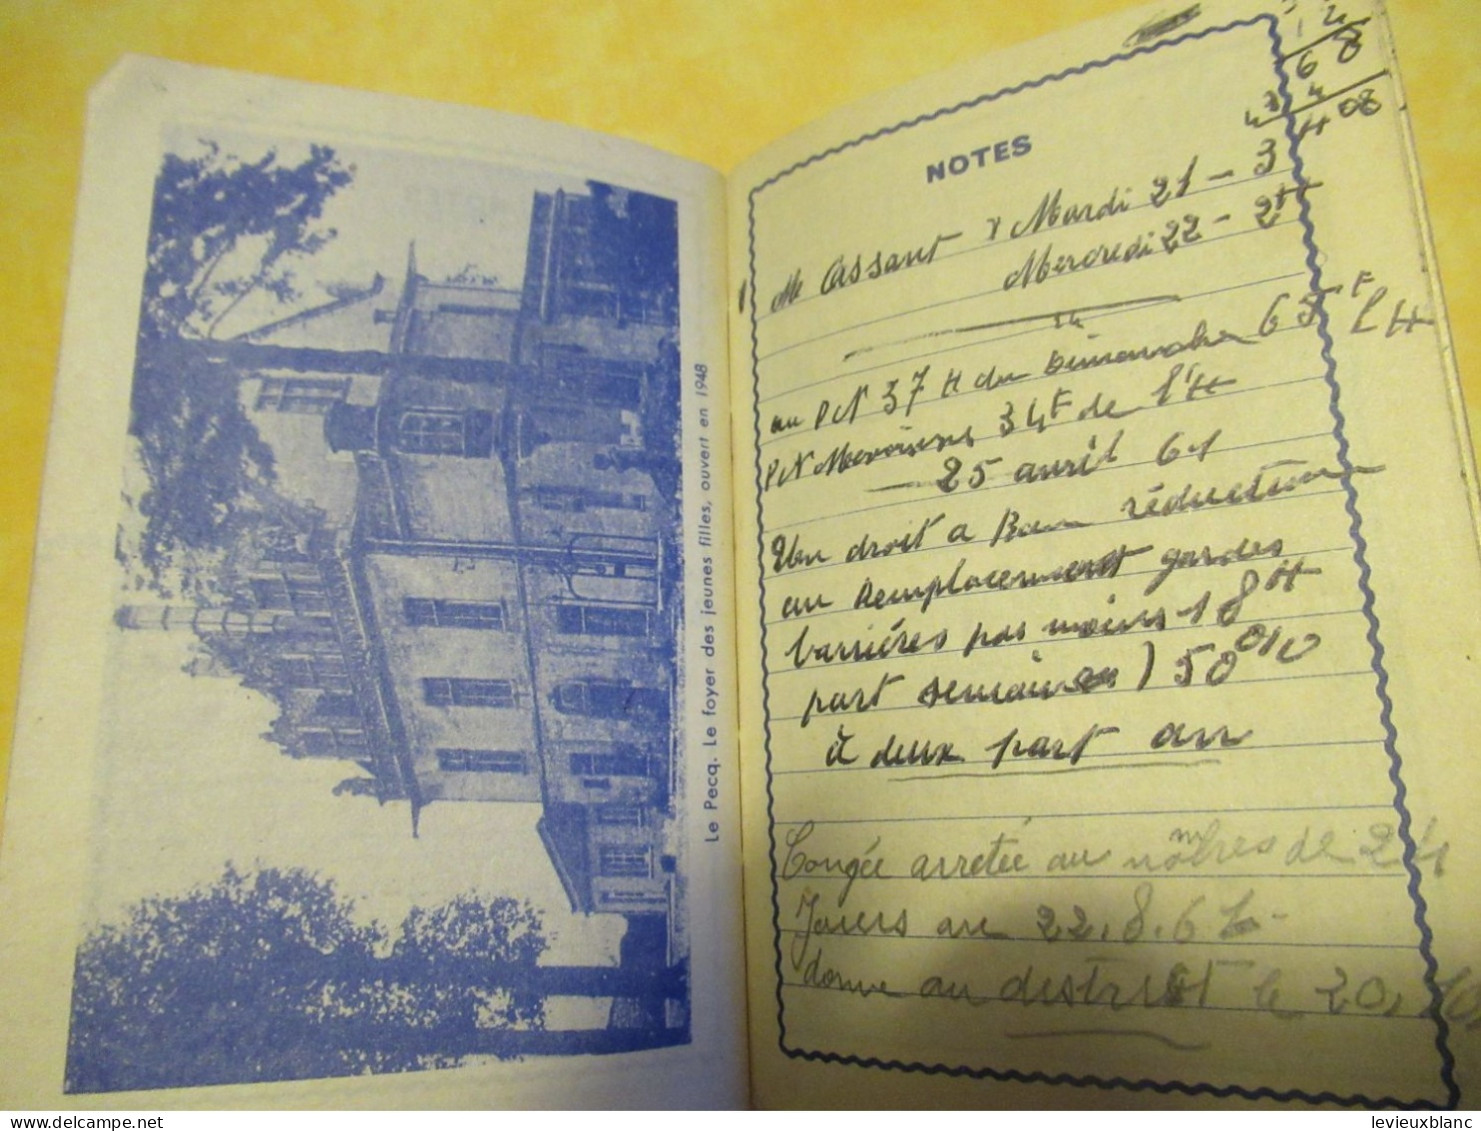 Le Pecq. Le foyer des jeunes filles, ouvert en 1948
NOTES
6 8
4
08
M Cassant Mardi 21 - 3
Mercredi 22 - 2H
au PN 37 H du Dimanche 65F l H
PN 34F de l'H
25 avril 61
droit a réduction
au Remplacement gardes
barrières pas moins 18H
part semaine) 50 0/0
à deux part an
Congée arretée au nombres de 24
Jours au 22.8.61
donné au district le 20.10.
delcampe.net
levieuxblanc